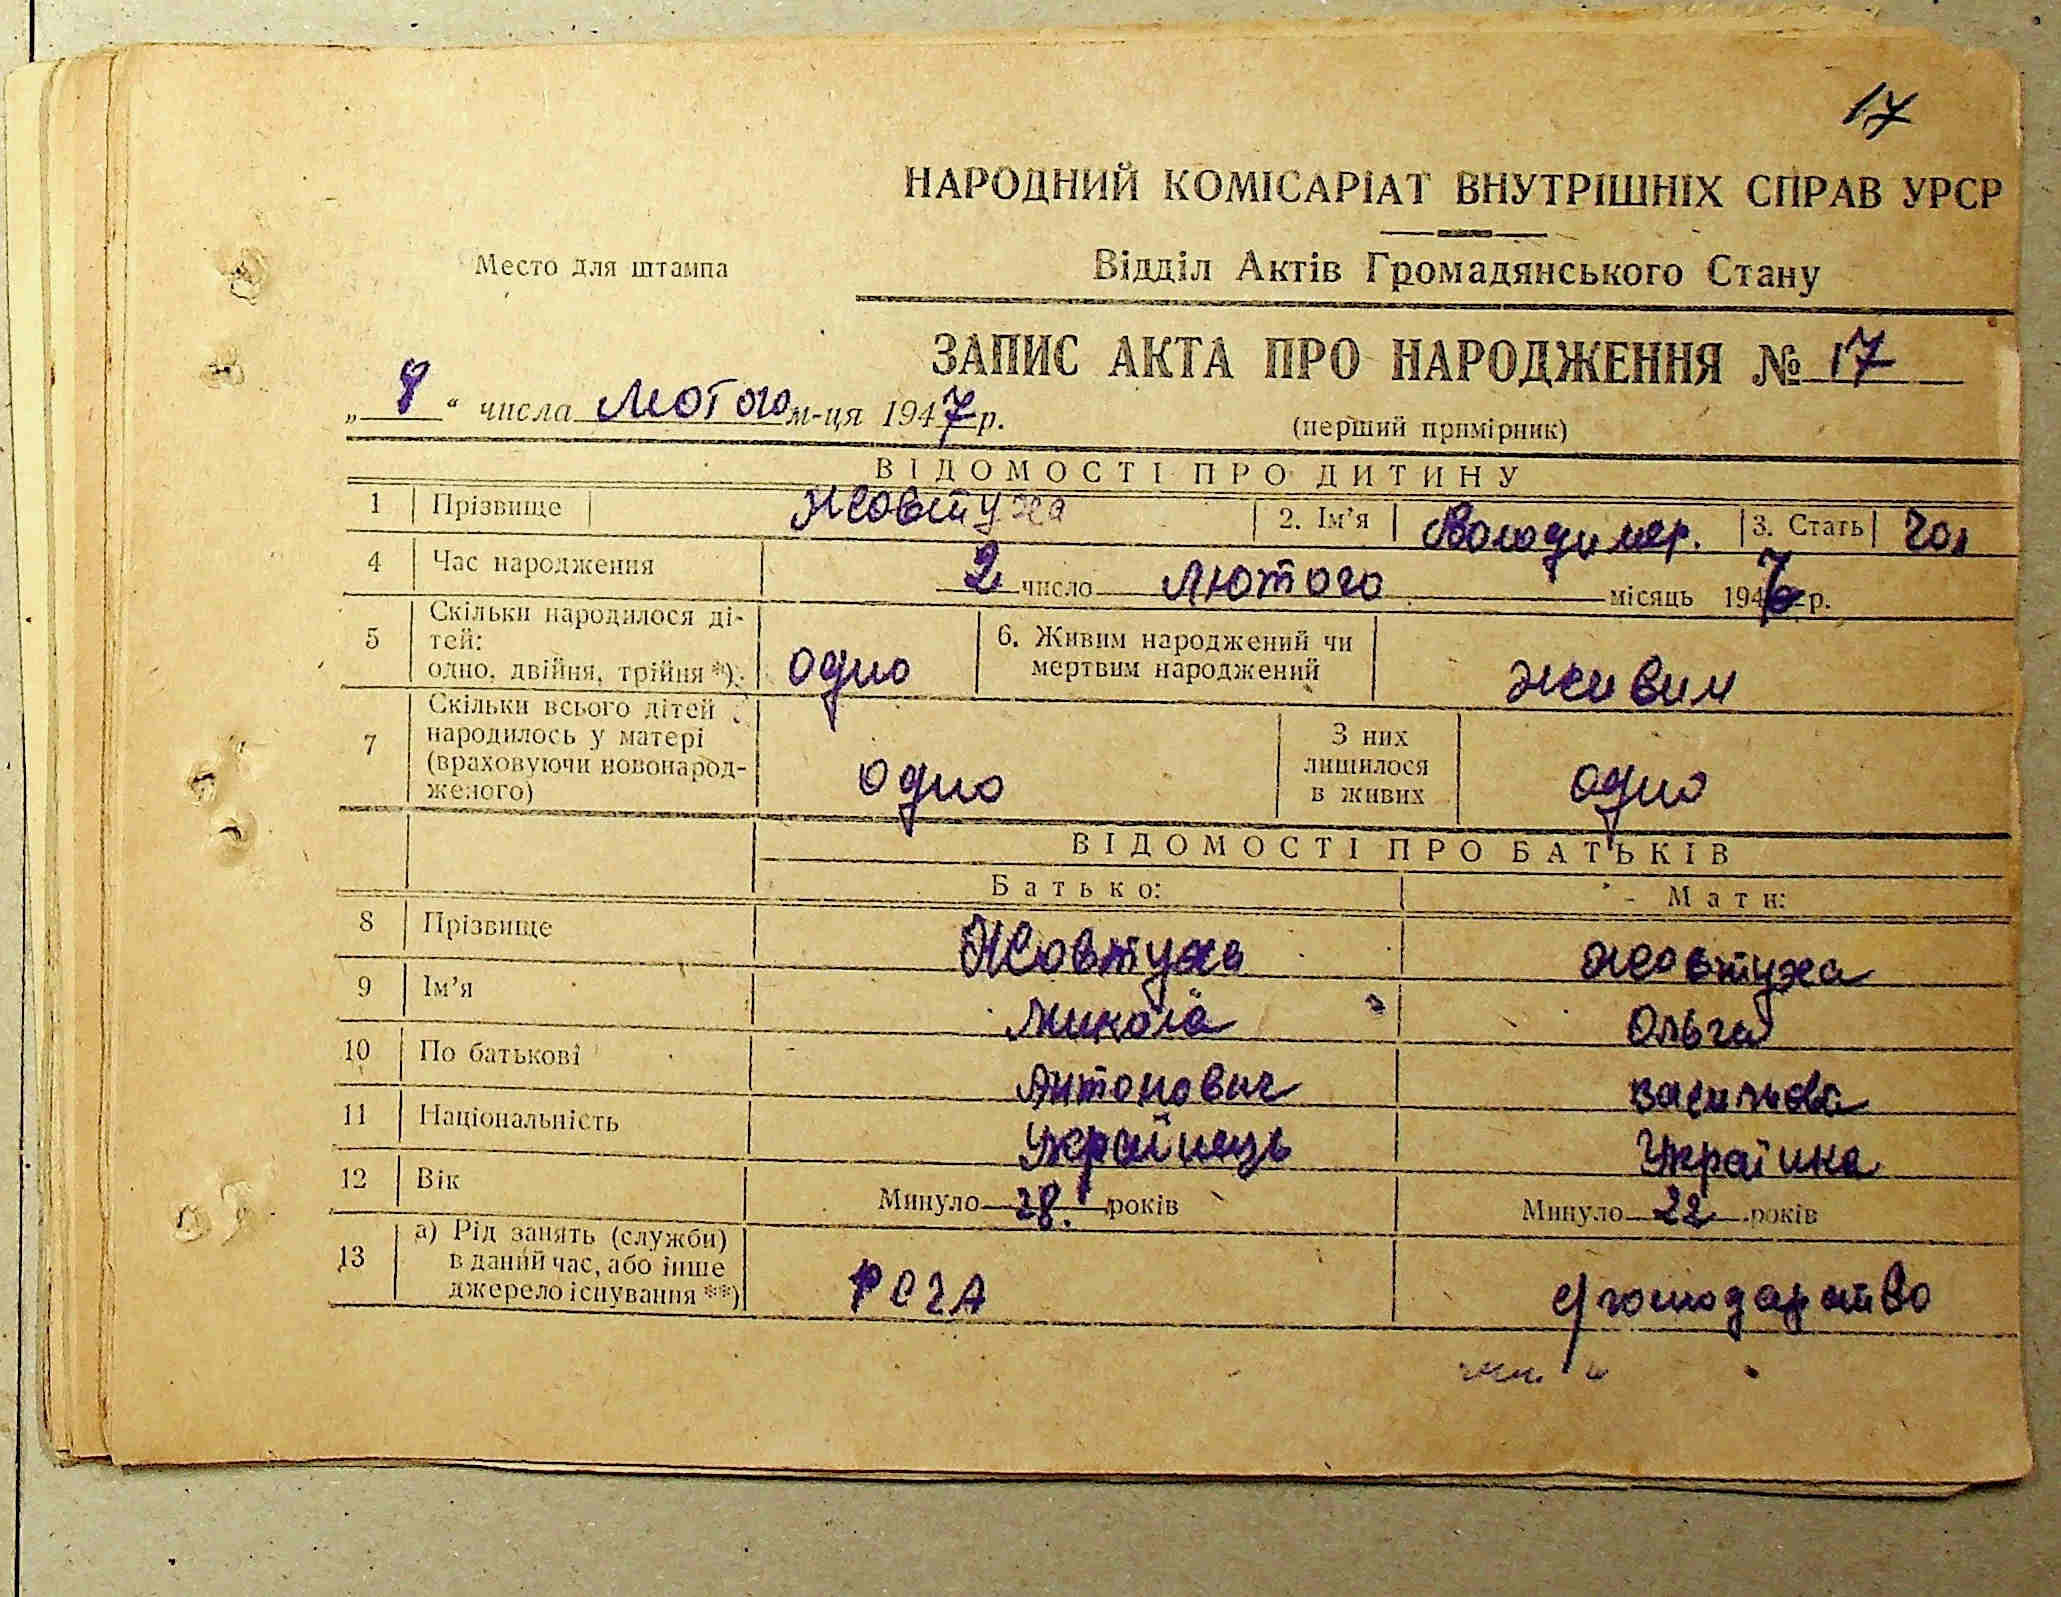 17
НАРОДНИЙ КОМІСАРІАТ ВНУТРІШНІХ СПРАВ УРСР
Место для штампа
Відділ Актів Громадянського Стану
ЗАПИС АКТА ПРО НАРОДЖЕННЯ № 17
„8“ числа лютого м-ця 1947 р.
(перший примірник)
ВІДОМОСТІ ПРО ДИТИНУ
1 Прізвище Жовтуха 2. Ім’я Володимер. 3. Стать чол
4 Час народження 2 число лютого місяць 1947 р.
5 Скільки народилося ді-
тей:
одно, двійня, трійня *) одно 6. Живим народжений чи
мертвим народжений живим
7 Скільки всього дітей
народилось у матері
(враховуючи новонарод-
женого) одно З них
лишилося
в живих одно
ВІДОМОСТІ ПРО БАТЬКІВ
Батько: Мати:
8 Прізвище Жовтуха Жовтуха
9 Ім’я Микола Ольга
10 По батькові Антонович
11 Національність Українець Україинка
12 Вік Минуло 28. років Минуло 22 років
13 а) Рід занять (служби)
в даний час, або інше
джерело існування **)
господарство